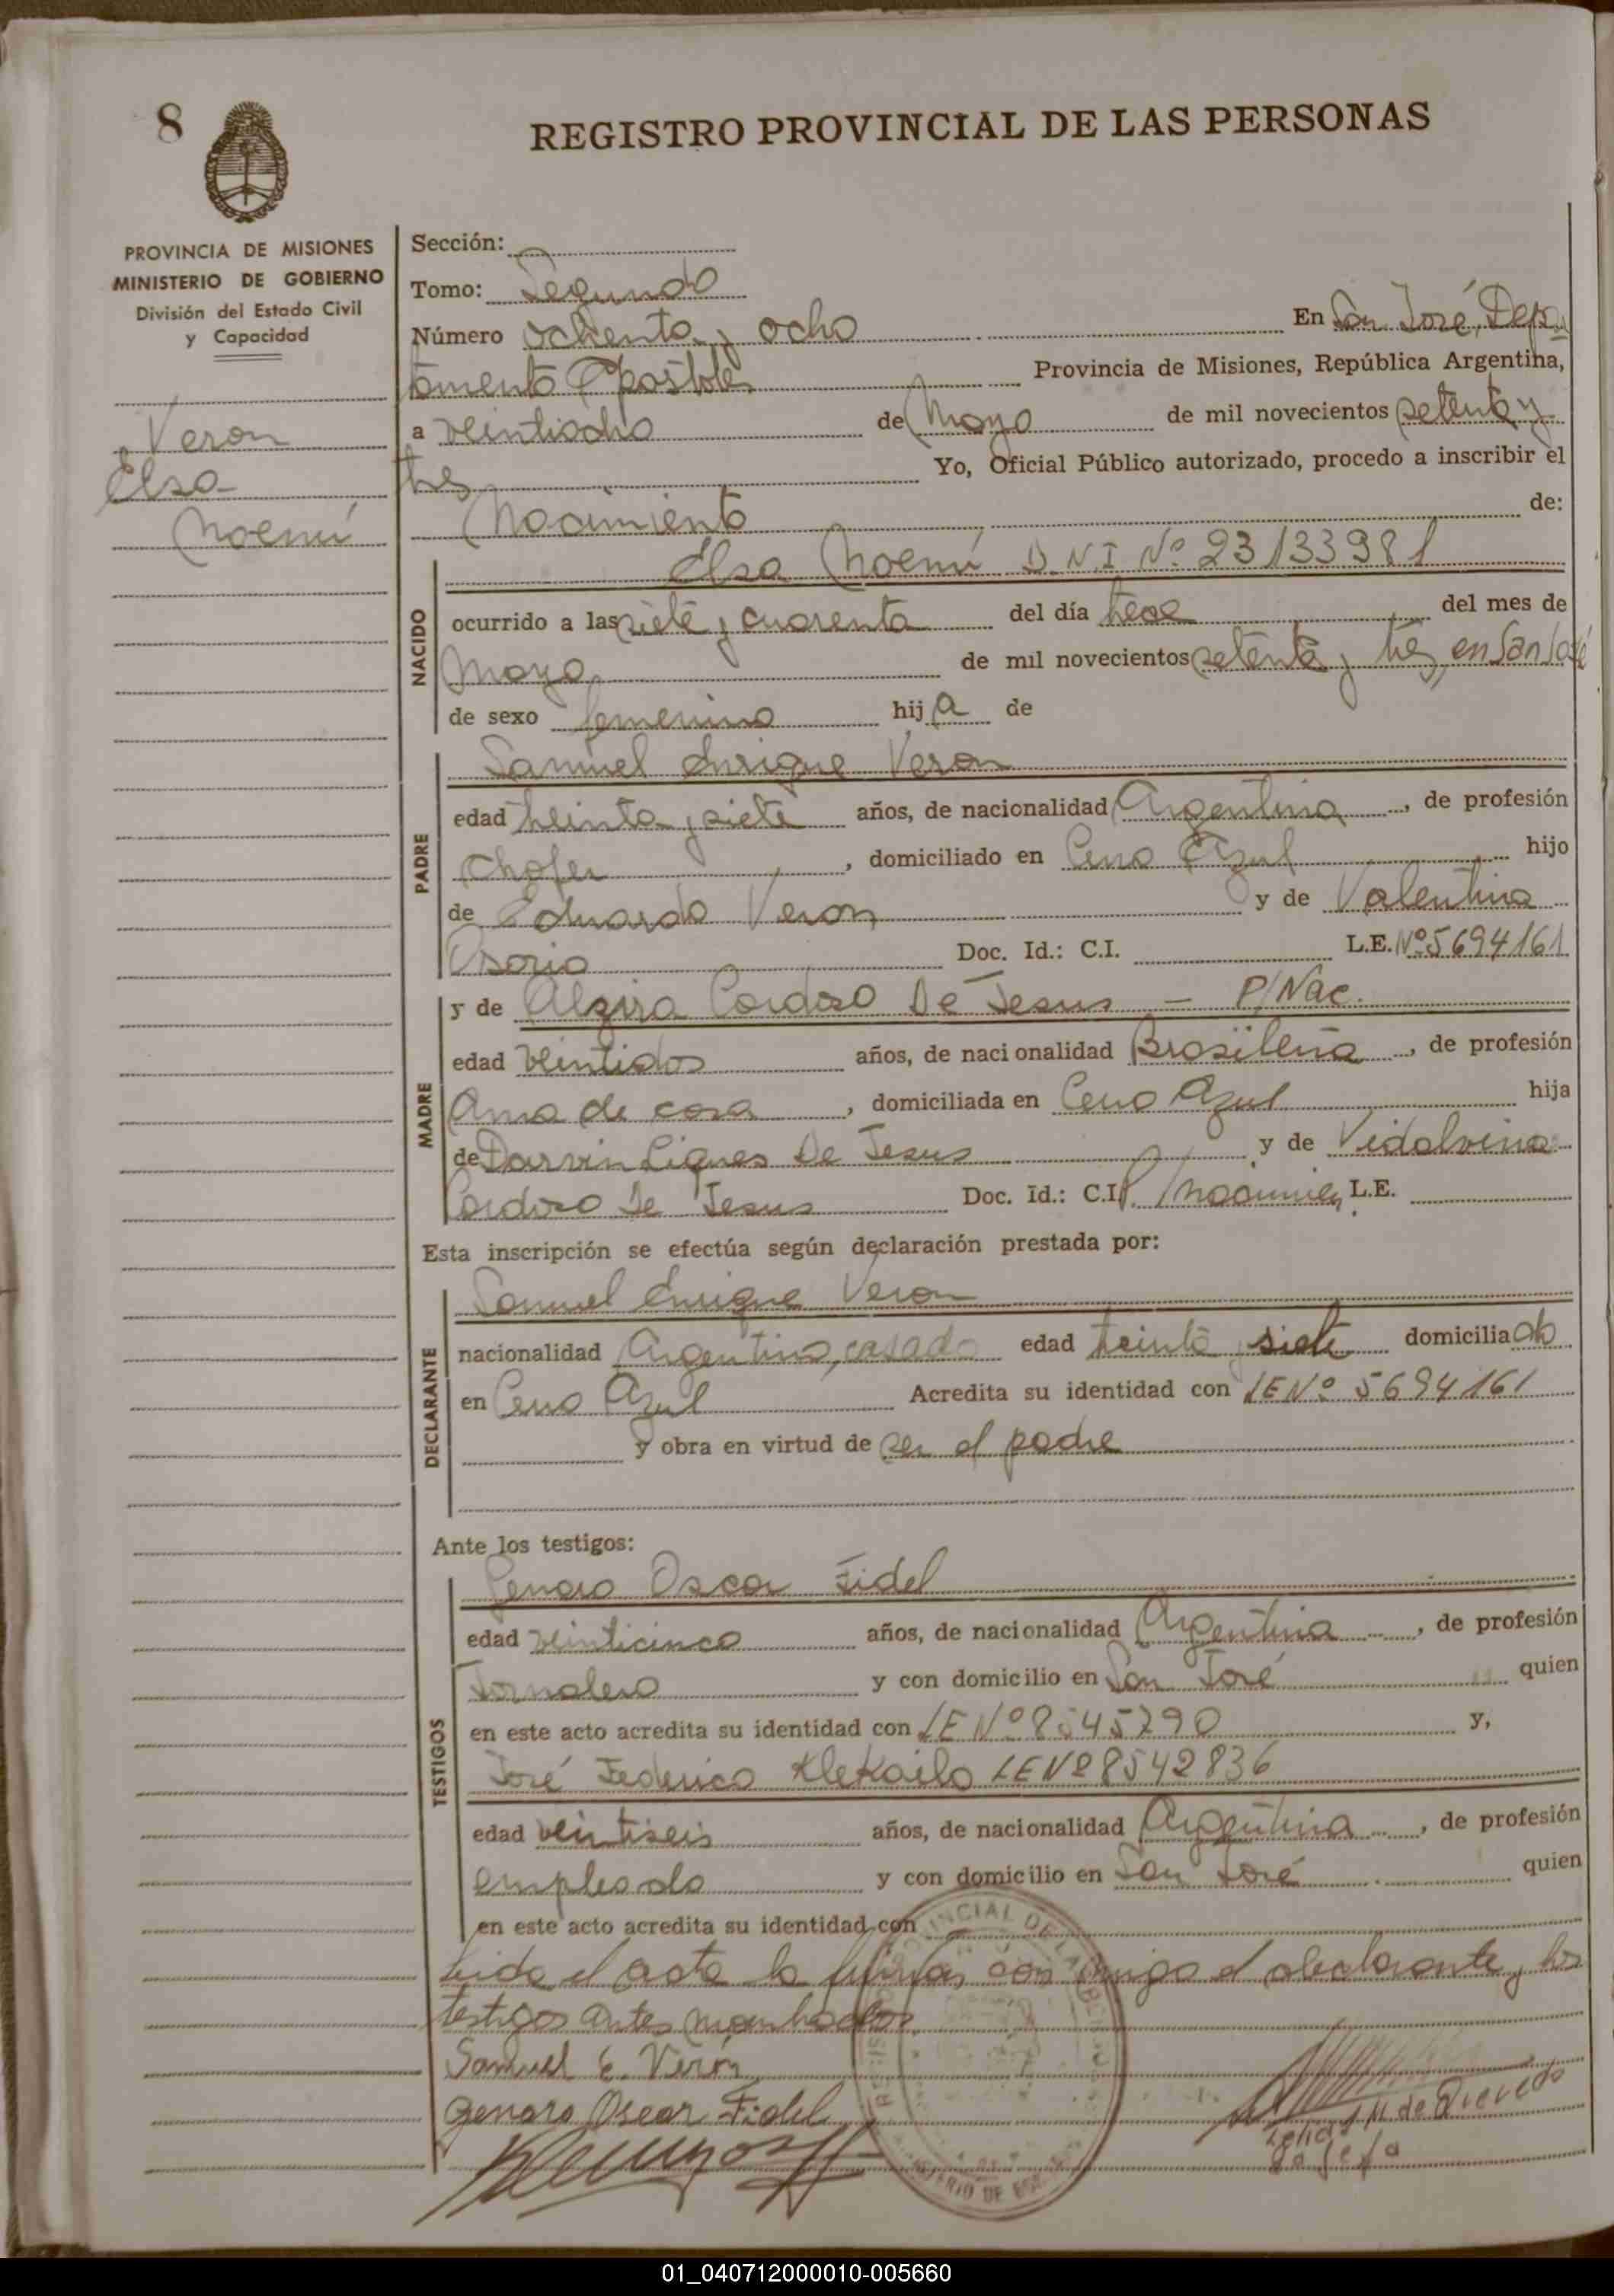 8
REGISTRO PROVINCIAL DE LAS PERSONAS
PROVINCIA DE MISIONES
MINISTERIO DE GOBIERNO
División del Estado Civil
y Capacidad
Veron
Elsa
Noemí
Sección:
Tomo: Segundo
Número ochenta y ocho En San José, Depar
tamento Apóstoles Provincia de Misiones, República Argentina,
a veintiocho de Mayo de mil novecientos setenta y
tres Yo, Oficial Público autorizado, procedo a inscribir el
Nacimiento de:
Elsa Noemí D.N.I Nº 23133981
NACIDO
ocurrido a las siete y cuarenta del día trece del mes de
Mayo de mil novecientos setenta y tres, en San José
de sexo femenino hija de
PADRE
Samuel Enrique Veron
edad treinta y siete años, de nacionalidad Argentina, de profesión
Chofer, domiciliado en Cerro Azul hijo
de Eduardo Veron y de Valentina
Osorio Doc. Id.: C.I. L.E. Nº 5694161
MADRE
y de Alzira Cordoso De Jesus — P/Nac.
edad veintidos años, de nacionalidad Brasileña, de profesión
Ama de casa, domiciliada en Cerro Azul hija
de Darvin Liques De Jesus y de Vidalvina
Cordoso De Jesus Doc. Id.: C.I. L.E.
Esta inscripción se efectúa según declaración prestada por:
DECLARANTE
Samuel Enrique Veron
nacionalidad Argentino, casado edad treinta y siete domiciliado
en Cerro Azul Acredita su identidad con LE Nº 5694161
y obra en virtud de ser el padre
Ante los testigos:
TESTIGOS
Genaro Oscar Fidel
edad veinticinco años, de nacionalidad Argentina, de profesión
Jornalero y con domicilio en San José quien
en este acto acredita su identidad con LE Nº 8545790 y,
José Federico Klekailo LE Nº 8542836
edad veintiseis años, de nacionalidad Argentina, de profesión
empleado y con domicilio en San José quien
en este acto acredita su identidad con
Leida el acta la firman conmigo el declarante y los
testigos antes nombrados.
Samuel E. Verón
Genaro Oscar Fidel
M. de Quevedo
Jefa
01_040712000010-005660